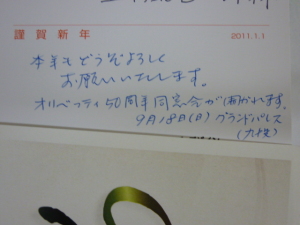 謹賀新年
2011.1.1
本年もどうぞよろしく
お願いいたします。
オリベッティ50周年同窓会が開かれます。
9月18日(日) グランドパレス